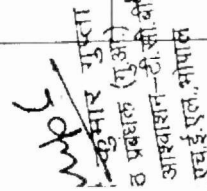 कुमार गुप्ता
ठ प्रबंधक (गु.आ)
आश्वाशन-टी.सी.बी
एच.ई.एल.,भोपाल